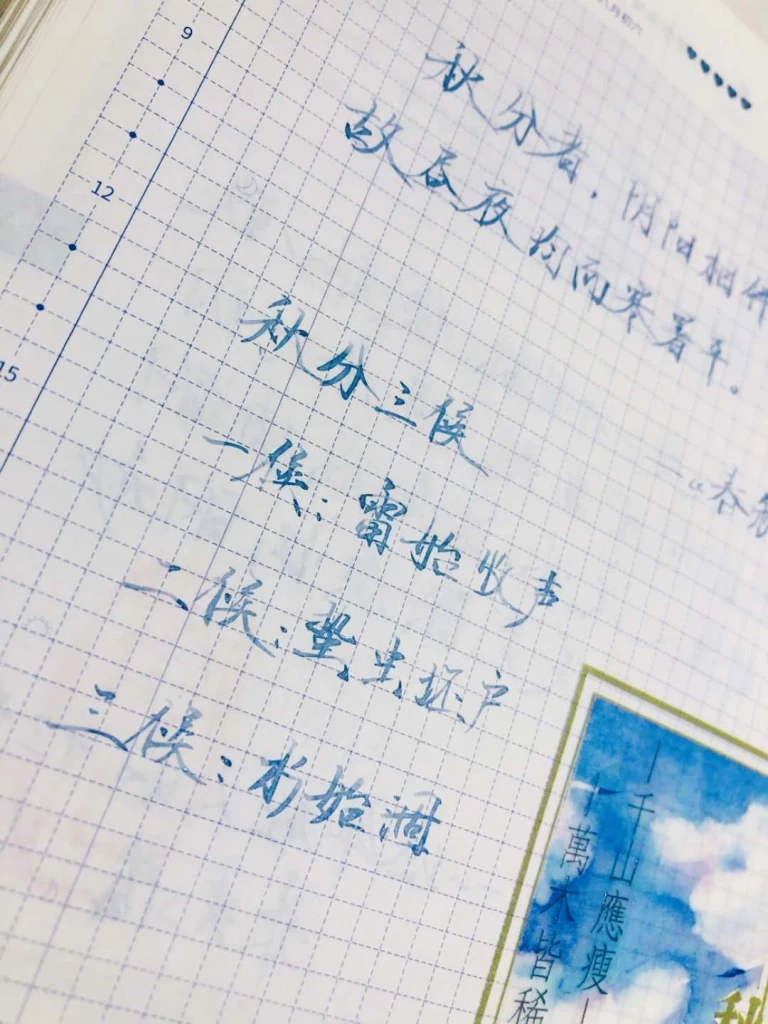 八月初六
9
12
15
秋分者，阴阳相
故昼夜均而寒暑平。
—《春秋
秋分三候
一候：雷始收声
二候：蛰虫坯户
三候：水始涸
千山應瘦
萬木皆稀
秋